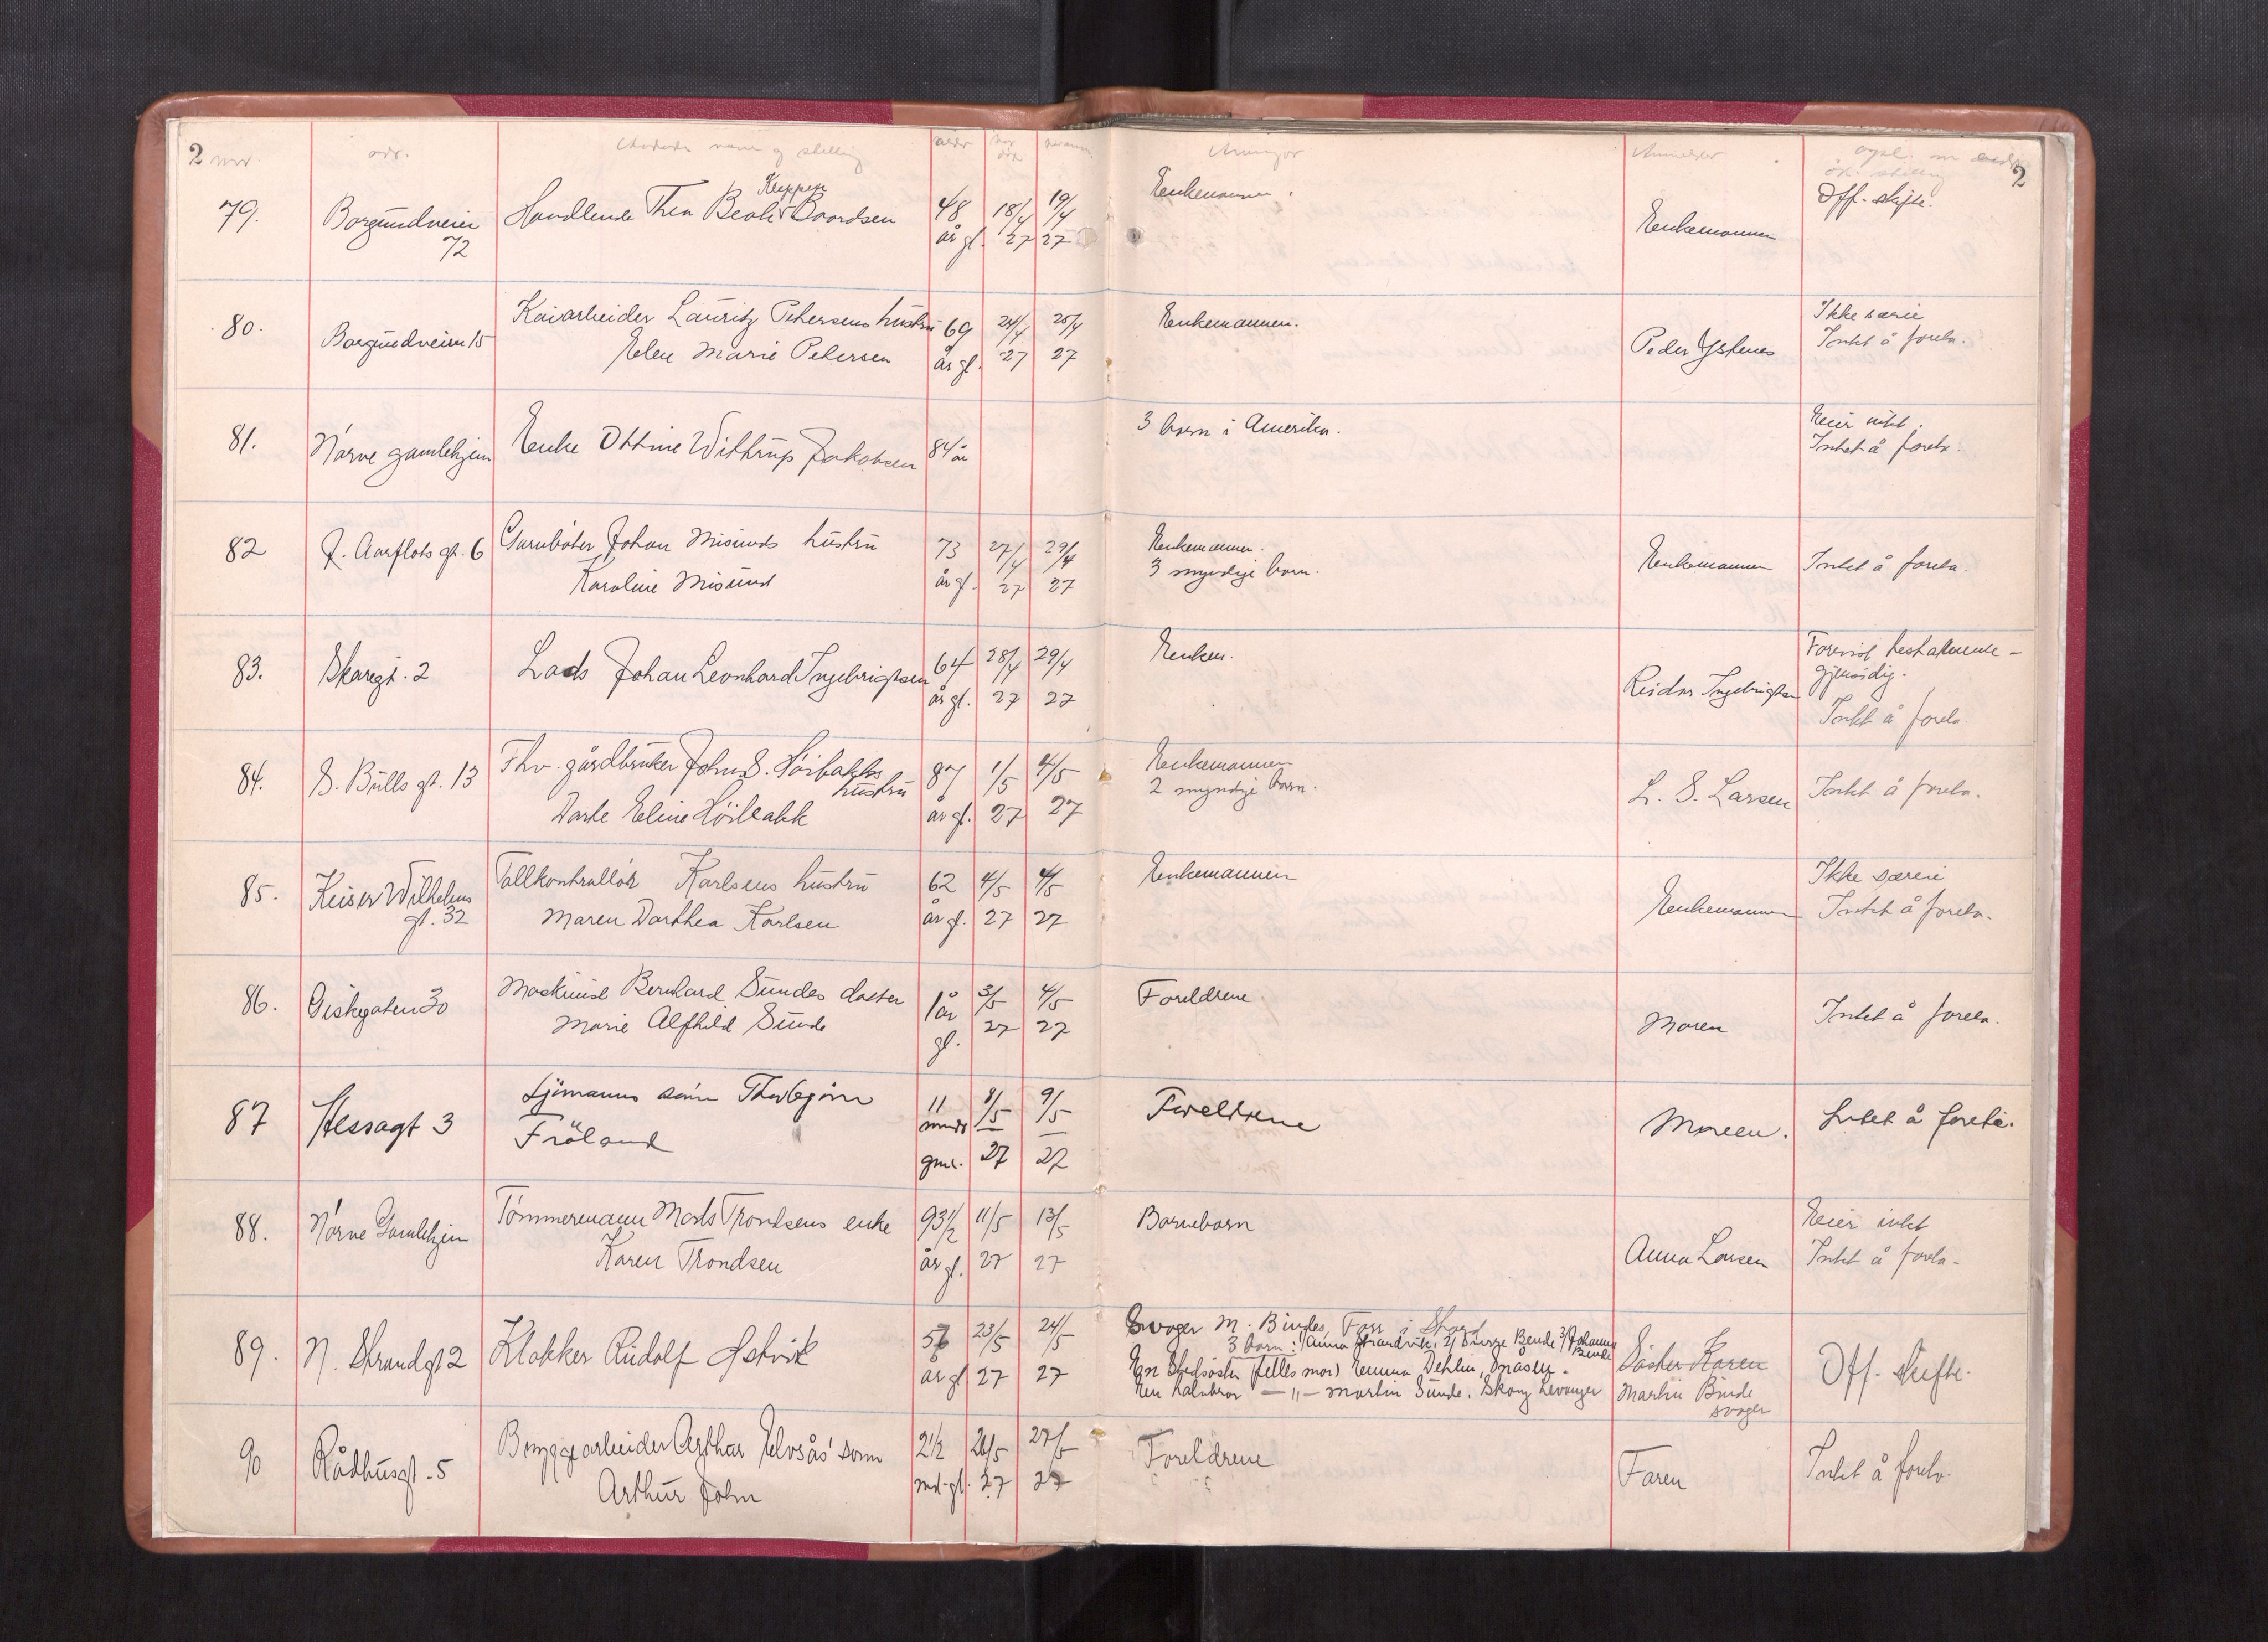 2 nr. adr. Avdødes navn og stilling alder når død når anm. Arvinger Anmelder opl. om 2
79. Borgundveien 72
Handlende Thea Beate Kuppen Baardsen
48 år gl. 18/4 27 19/4 27
Enkemannen.
Enkemannen
Off. skifte.
80. Borgundveien 15
Kaiarbeider Lauritz Petersens hustru
Elen Marie Petersen
69 år gl. 24/4 27 25/4 27
Enkemannen.
Peder Ystenes
Ikke særeie
Intet å foreta.
81. Nørve gamlehjem
Enke Ottine Withrup Jakobsen
84 år
3 barn i Amerika.
Eier intet.
Intet å foreta.
82 R. Aarflots gt. 6
Garnbøter Johan Misunds hustru
Karoline Misund
73 år gl. 27/4 27 29/4 27
Enkemannen.
3 myndige barn.
Enkemannen
Intet å foreta.
83. Skaregt. 2
Lods Johan Leonhard Ingebrigtsen
64 år gl. 28/4 27 29/4 27
Enken.
Reidar Ingebrigtsen
Forevist testamente -
gjensidig.
Intet å foreta
84. S. Bulls gt. 13
Fhv. gårdbruker John S. Høibakks
hustru
Dorte Eline Höibakk
87 år gl. 1/5 27 4/5 27
Enkemannen
2 myndige barn.
L. S. Larsen
Intet å foreta.
85. Keiser Wilhelms
gt. 32
Tollkontrollör Karlsens hustru
Maren Dorthea Karlsen
62 år gl. 4/5 27 4/5 27
Enkemannen
Enkemannen
Ikke særeie
Intet å foreta.
86. Giskegaten 30
Maskinist Bernhard Sundes datter
Marie Alfhild Sunde
1 år gl. 3/5 27 4/5 27
Foreldrene
Moren
Intet å foreta.
87 Hessagt 3
Sjömanns sönn Thorbjörn
Fröland
11 mndr gml. 8/5 27 9/5 27
Foreldrene
Moren.
Intet å foreta.
88. Nørve Gamlehjem
Tömmermann Mads Trondsens enke
Karen Trondsen
93 1/2 år gl. 11/5 27 13/5 27
Barnebarn
Anna Larsen
Eier intet
Intet å foreta.
89. N. Strandgt 2
Klokker Rudolf Østvik
56 år gl 23/5 27 24/5 27
Svoger M. Bindes, Foss i
3 barn: 1/ Anna Strandvik, 2/ Bende 3/ Johanna
Bende
En Stedsöster (felles mor) Emma Dehlin, Snåsen.
En halvbror — „ — Martin Sunde, Skogn Levanger
Søster Karen
Martin Binde
svoger
Off. skifte.
90 Rådhusgt. 5
Bryggearbeider Arthur Elvsås' sønn
Arthur John
2 1/2 md. gl. 26/5 27 27/5 27
Foreldrene
Faren
Intet å foreta.